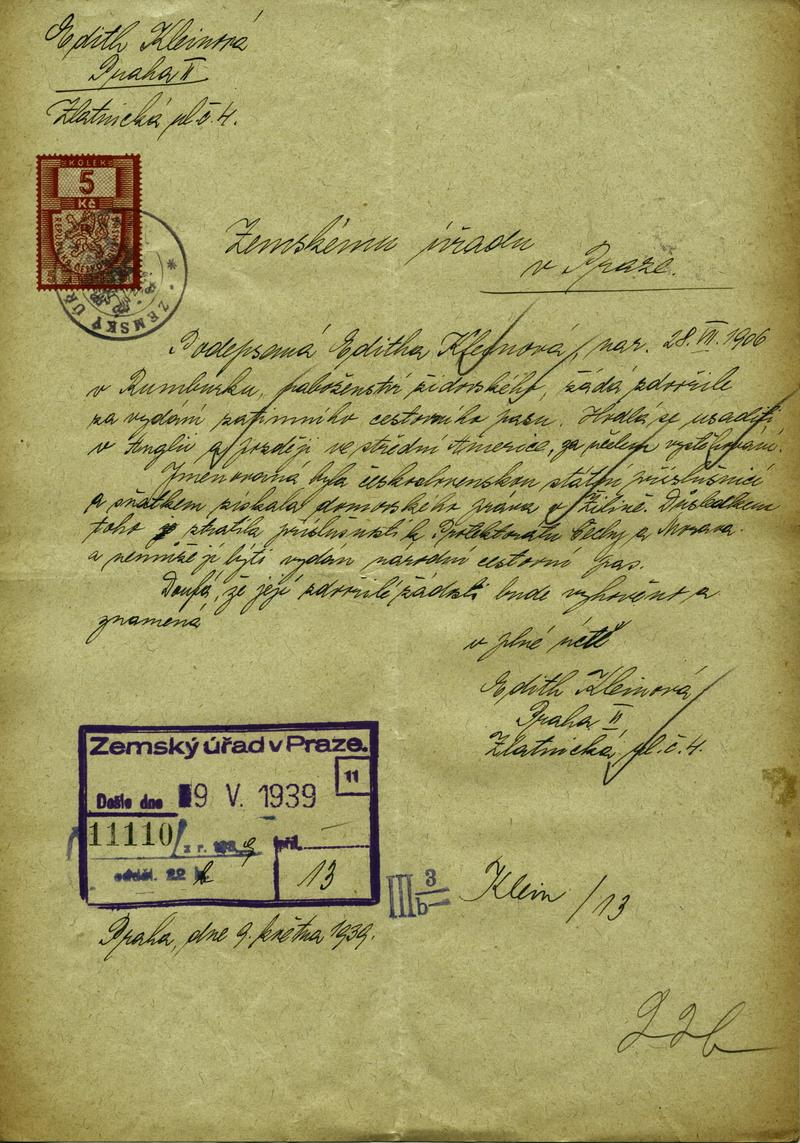 Edith Kleinová
Praha II
Zlatnická ul. č. 4.
KOLEK
5
Kč
ZEMSKÝ ÚŘ
Zemskému úřadu
v Praze.
Podepsaná Editha Kleinová, nar. 28.VII.1906
v Rumburku, náboženství židovského, žádá zdvořile
za vydání zatimního cestovního pasu. Hodlá se usaditi
v Anglii a později ve střední Americe, za účelem vystěhování.
Jmenovaná byla československou státní příslušnicí
a sňatkem získala domovského práva v Žilině. Důsledkem
toho ztratila příslušnosti k Protektorátu Čechy a Morava
a nemůže jí býti vydán národní cestovní pas.
Doufá, že její zdvořilé žádosti bude vyhověno a
znamená
v plné úctě
Edith Kleinová
Praha II
Zlatnická ul. č. 4.
Zemský úřad v Praze.
11
Došlo dne 9 V. 1939
11110/ z r. 193 9
příl.
odděl. 22 b
13
III 3 b
Klein /13
Praha, dne 9. května 1939.